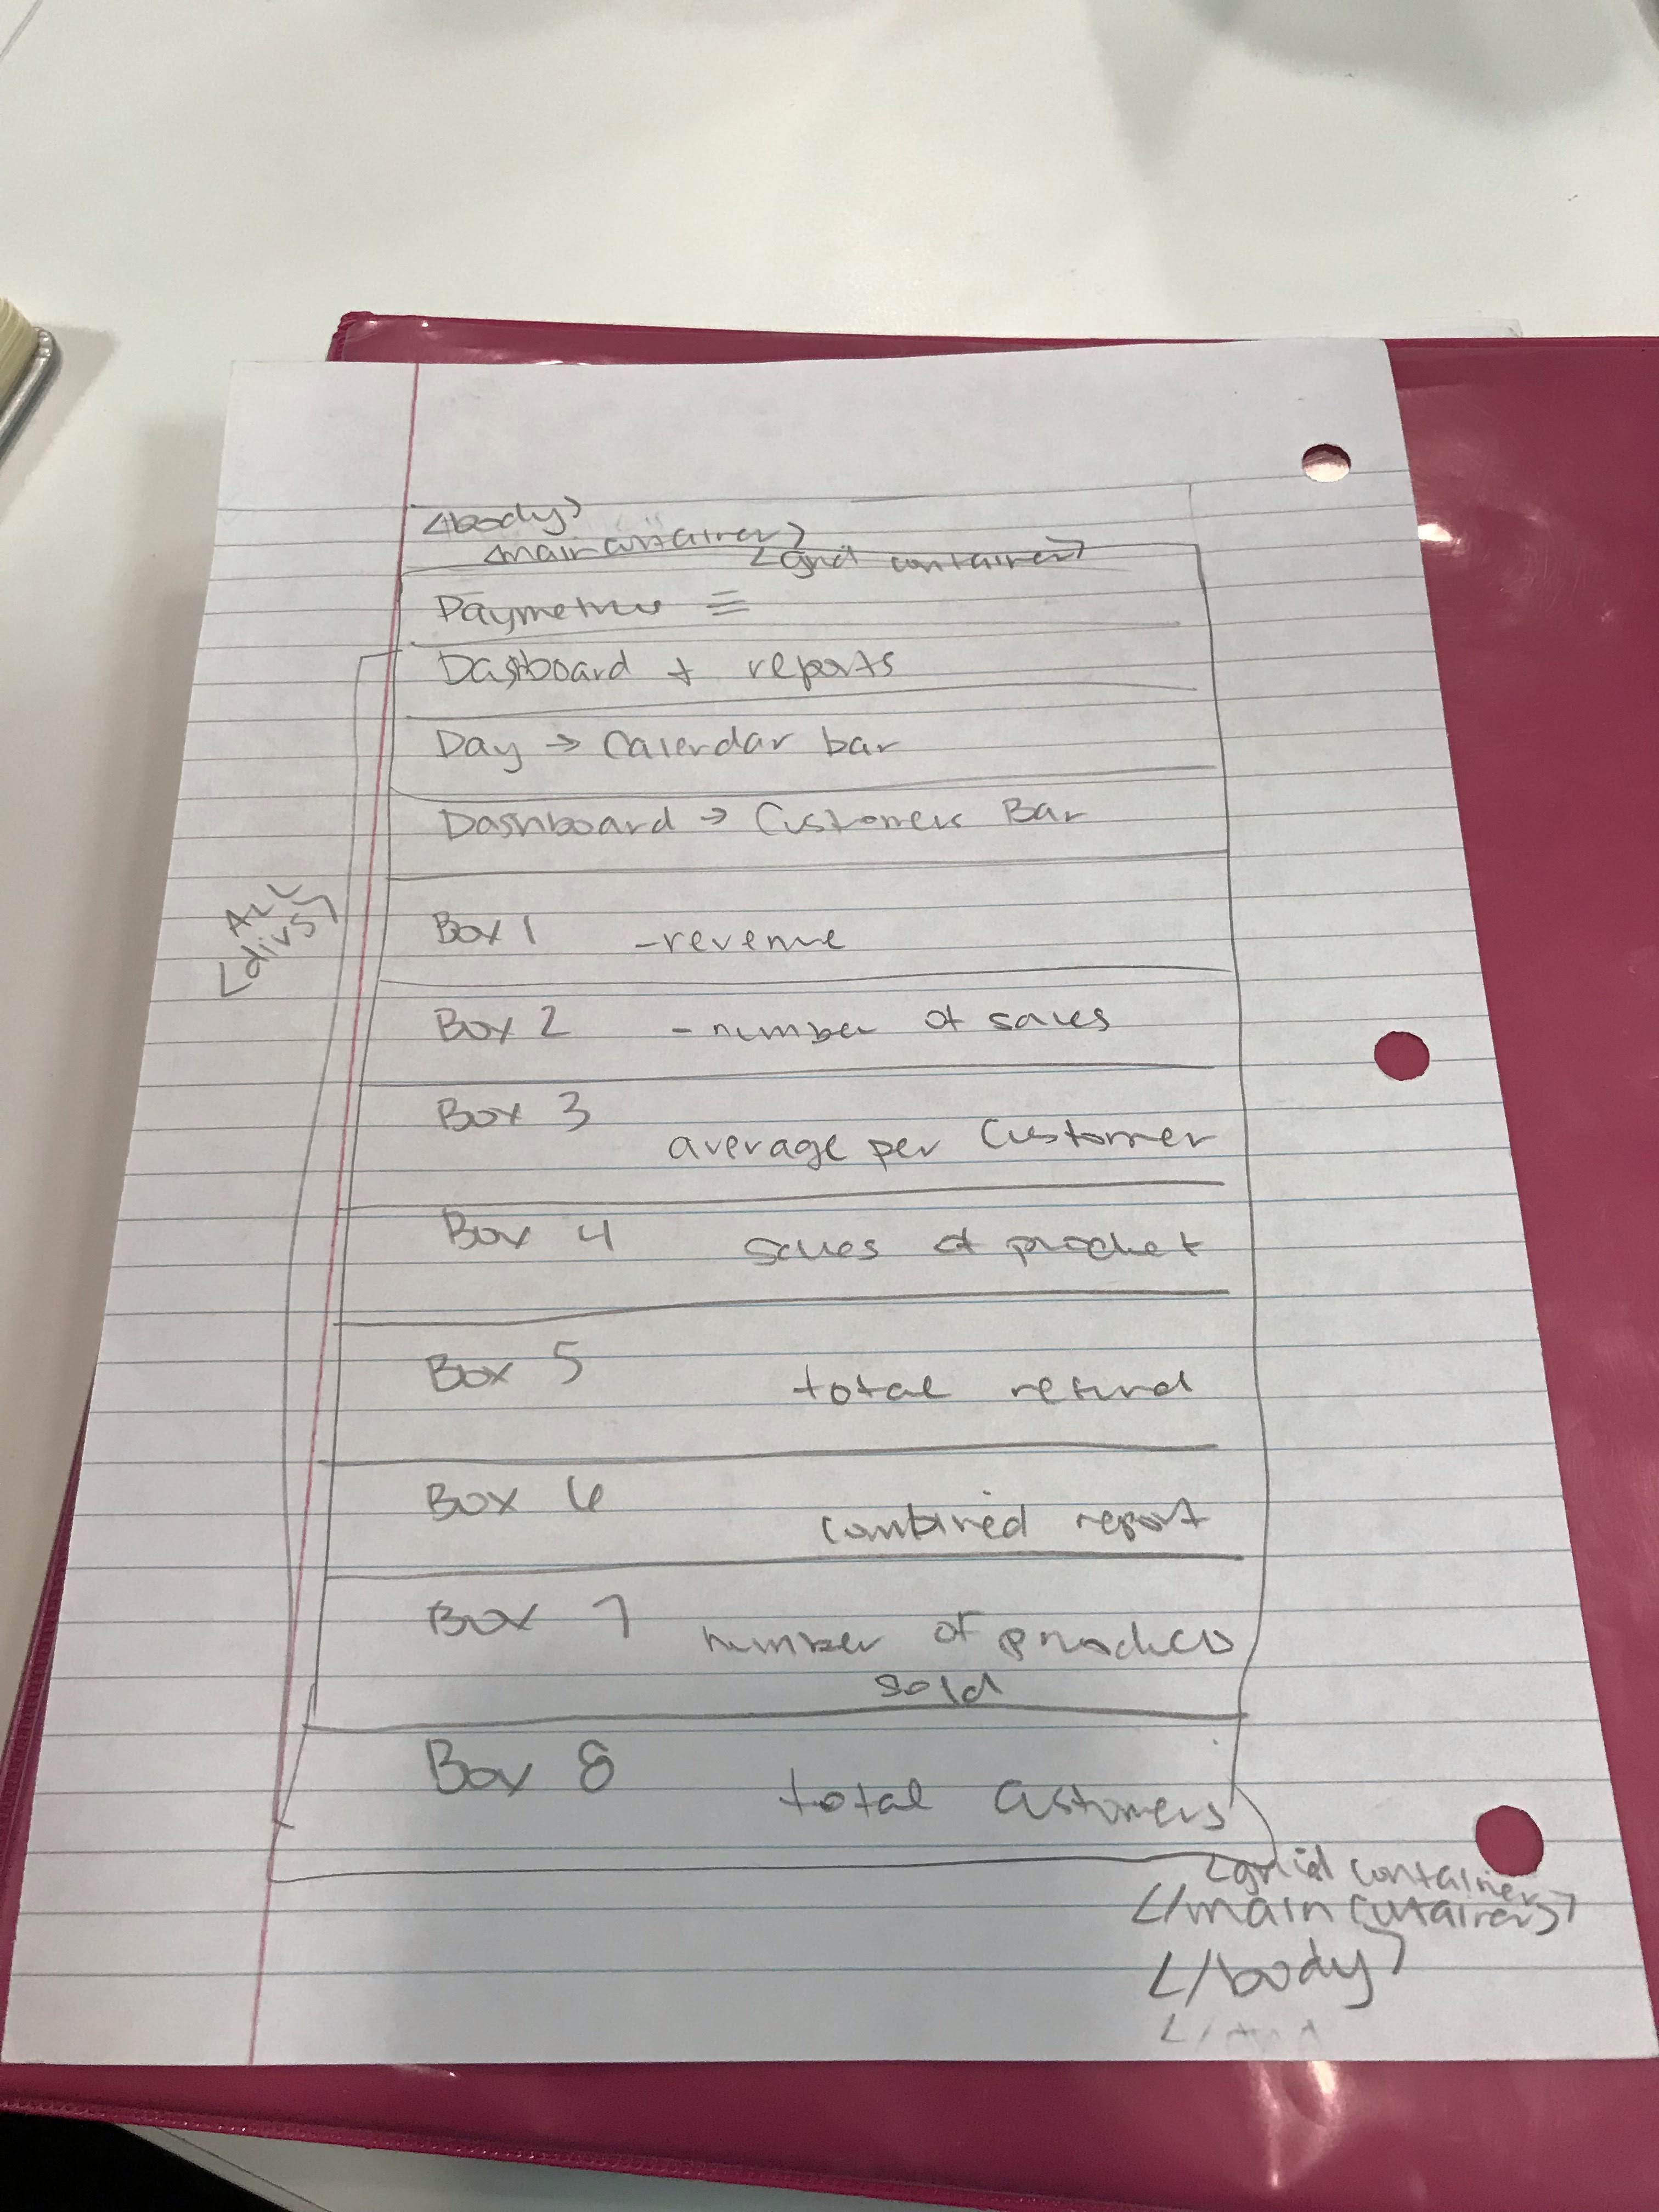 <body>
<main container>
<grid container>
Paymetrics ≡
Dashboard + reports
Day → Calendar bar
Dashboard → Customers Bar
ALL
<divs>
Box 1 - revenue
Box 2 - number of sales
Box 3 average per Customer
Box 4 sales of product
Box 5 total refund
Box 6 combined report
Box 7 number of products
sold
Box 8 total customers
<grid container
</main containers>
</body>